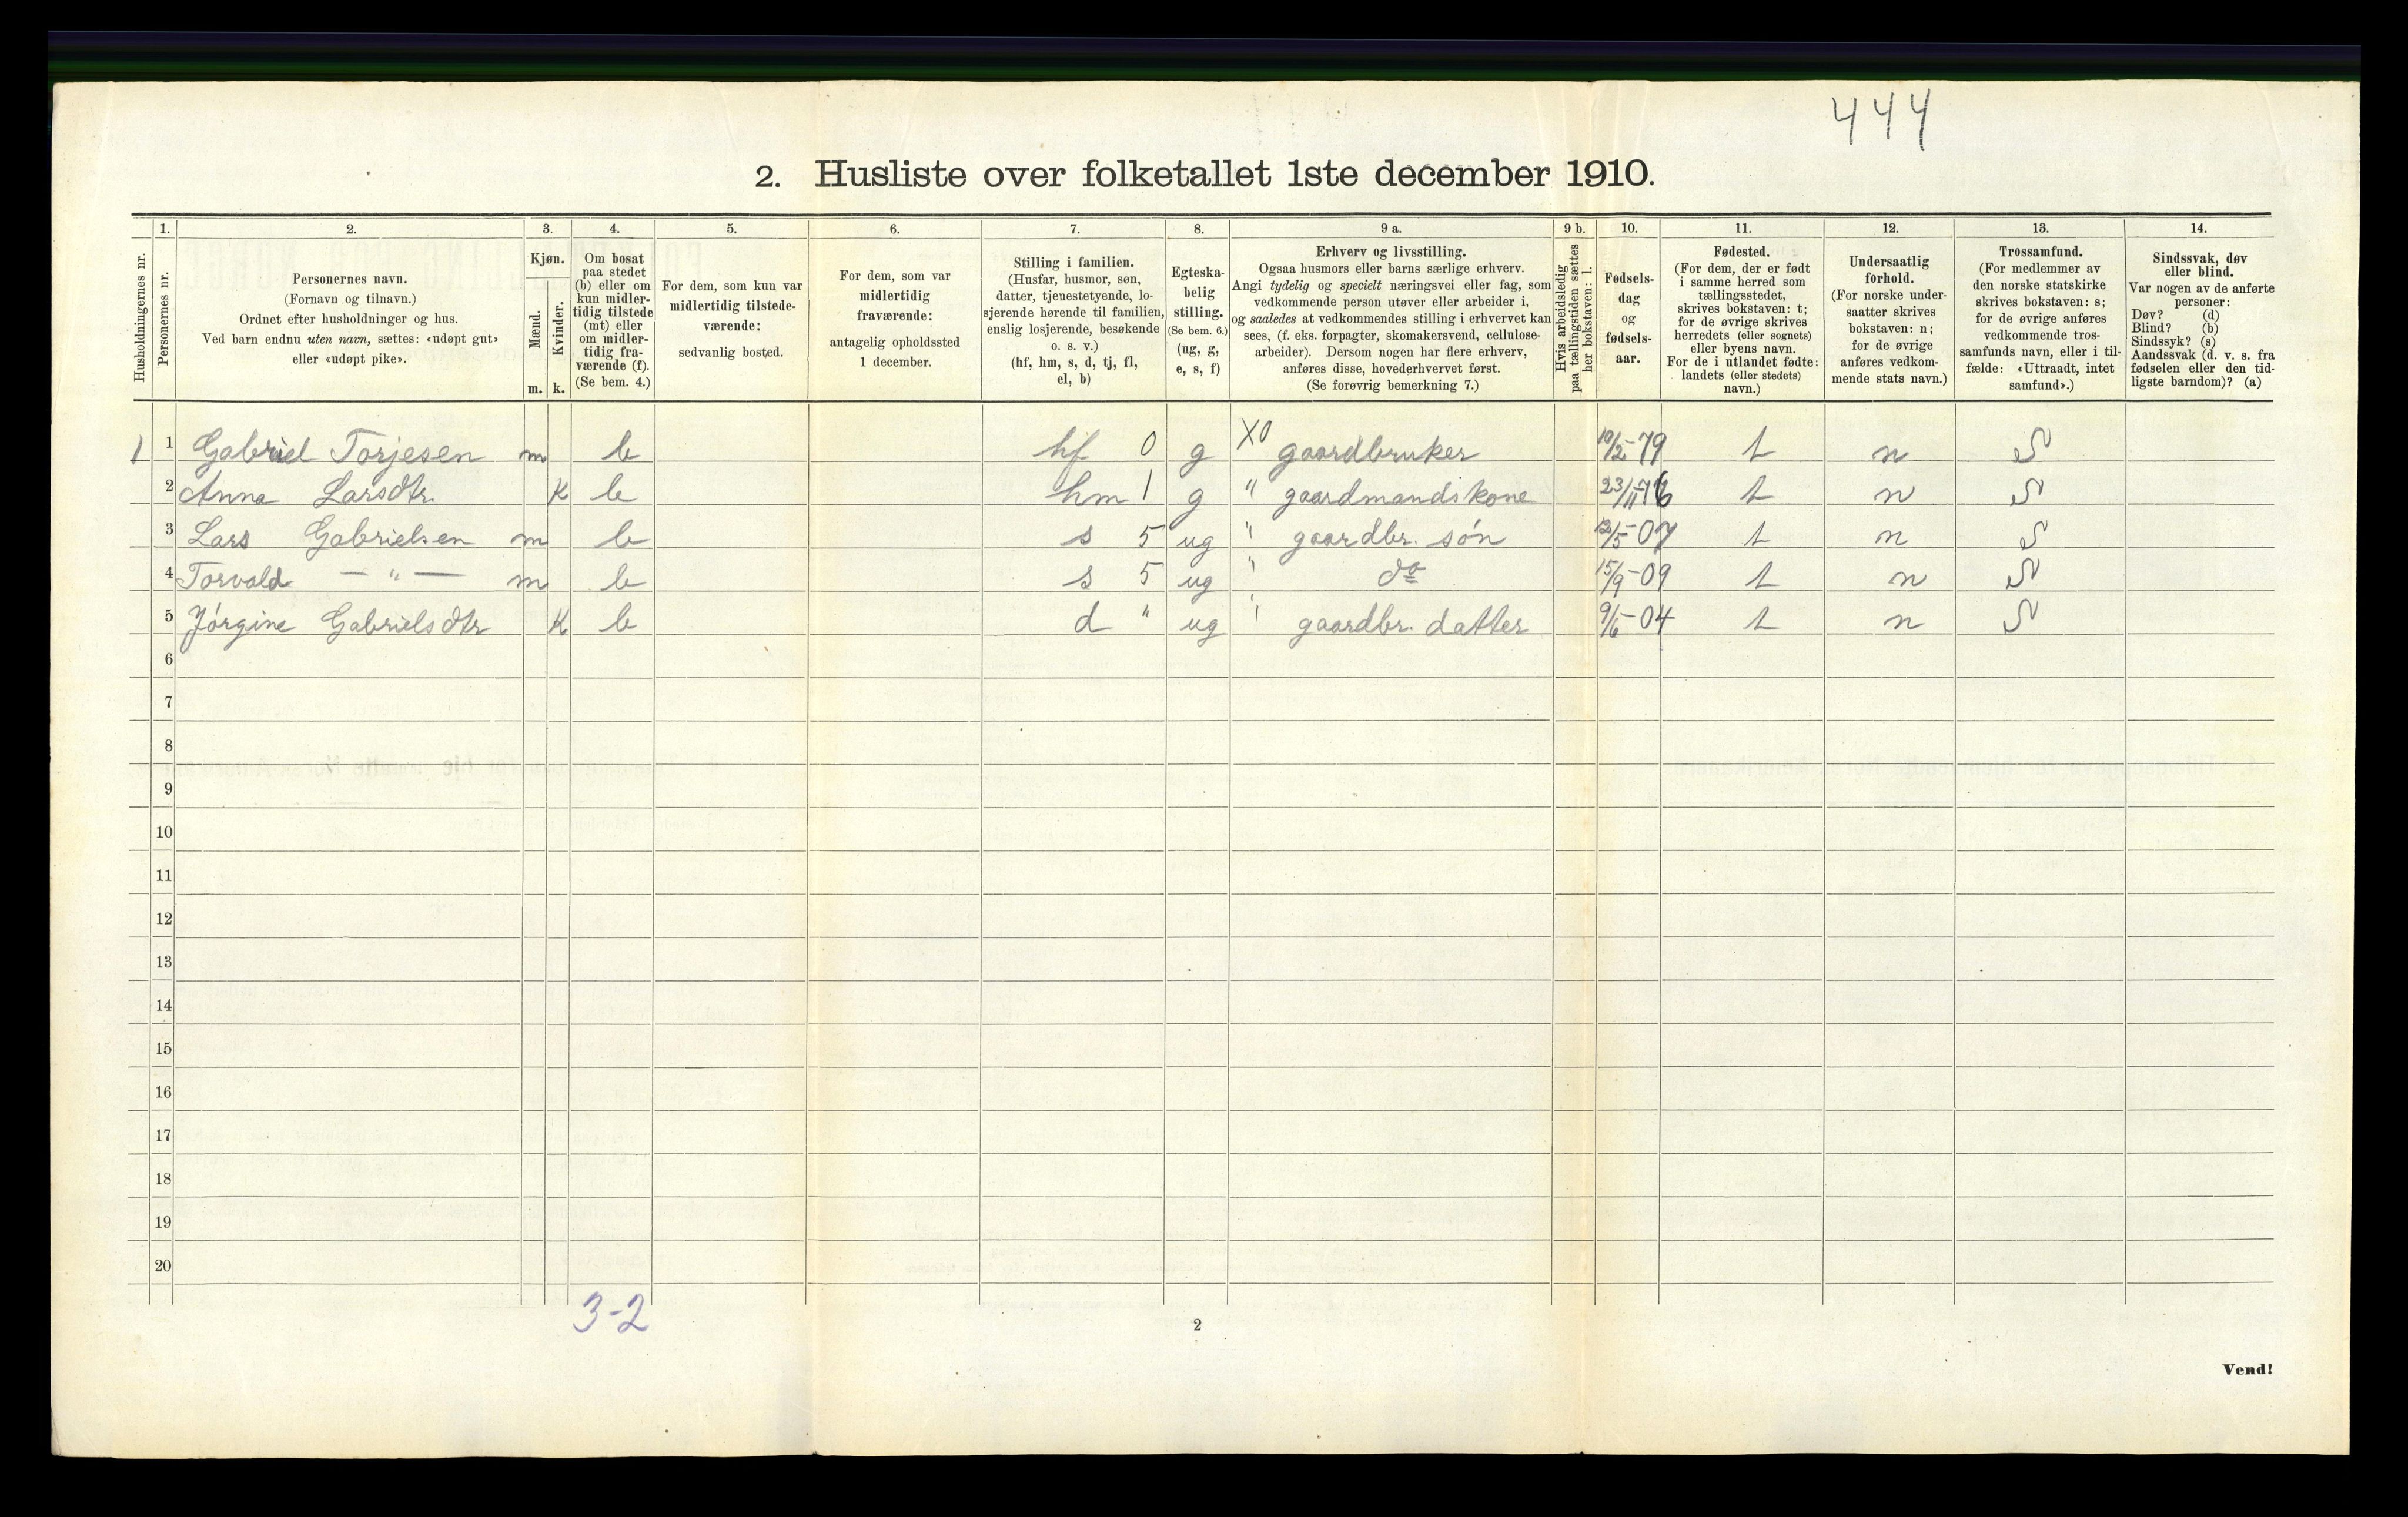 444
2. Husliste over folketallet 1ste december 1910.
Husholdningernes nr.
1.
Personernes nr.
2.
Personernes navn.
(Fornavn og tilnavn.)
Ordnet efter husholdninger og hus.
Ved barn endnu uten navn, sættes: «udøpt gut»
eller «udøpt pike».
3.
Kjøn.
Mænd.
Kvinder.
m. k.
4.
Om bosat
paa stedet
(b) eller om
kun midler-
tidig tilstede
(mt) eller
om midler-
tidig fra-
værende (f).
(Se bem. 4.)
5.
For dem, som kun var
midlertidig tilstede-
værende:
sedvanlig bosted.
6.
For dem, som var
midlertidig
fraværende:
antagelig opholdssted
1 december.
7.
Stilling i familien.
(Husfar, husmor, søn,
datter, tjenestetyende, lo-
sjerende hørende til familien,
enslig losjerende, besøkende
o. s. v.)
(hf, hm, s, d, tj, fl,
el, b)
8.
Egteska-
belig
stilling.
(Se bem. 6.)
(ug, g,
e, s, f)
9 a.
Erhverv og livsstilling.
Ogsaa husmors eller barns særlige erhverv.
Angi tydelig og specielt næringsvei eller fag, som
vedkommende person utøver eller arbeider i,
og saaledes at vedkommendes stilling i erhvervet kan
sees, (f. eks. forpagter, skomakersvend, cellulose-
arbeider). Dersom nogen har flere erhverv,
anføres disse, hovederhvervet først.
(Se forøvrig bemerkning 7.)
9 b.
Hvis arbeidsledig
paa tællingstiden sættes
her bokstaven: l.
10.
Fødsels-
dag
og
fødsels-
aar.
11.
Fødested.
(For dem, der er født
i samme herred som
tællingsstedet,
skrives bokstaven: t;
for de øvrige skrives
herredets (eller sognets)
eller byens navn.
For de i utlandet fødte:
landets (eller stedets)
navn.)
12.
Undersaatlig
forhold.
(For norske under-
saatter skrives
bokstaven: n;
for de øvrige
anføres vedkom-
mende stats navn.)
13.
Trossamfund.
(For medlemmer av
den norske statskirke
skrives bokstaven: s;
for de øvrige anføres
vedkommende tros-
samfunds navn, eller i til-
fælde: «Uttraadt, intet
samfund».)
14.
Sindssvak, døv
eller blind.
Var nogen av de anførte
personer:
Døv? (d)
Blind? (b)
Sindssyk? (s)
Aandssvak (d. v. s. fra
fødselen eller den tid-
ligste barndom)? (a)
1 1 Gabriel Torjesen m b hf 0 g X0 gaardbruker 10/2-79 t n S
2 Anna Larsdtr. K b hm 1 g " gaardmandskone 23/11-76 t n S
3 Lars Gabrielsen m b s 5 ug " gaardbr. søn 12/5-07 t n S
4 Torvald — " — m b s 5 ug " do 15/9-09 t n S
5 Jørgine Gabrielsdtr K b d " ug " gaardbr. datter 9/6-04 t n S
6
7
8
9
10
11
12
13
14
15
16
17
18
19
20
3-2
2
Vend!